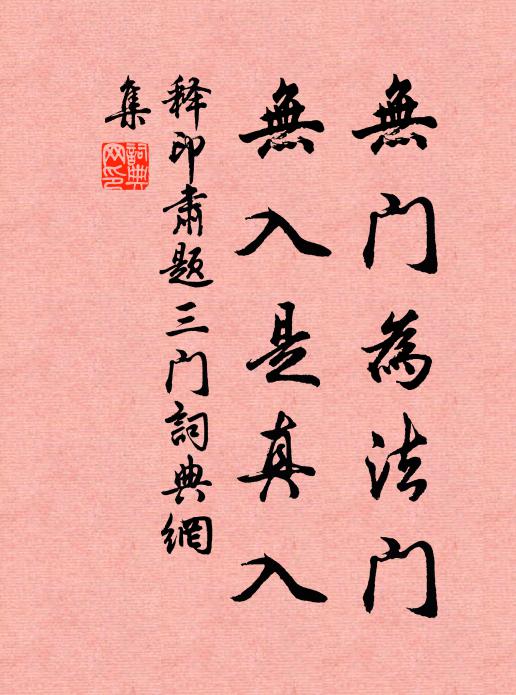 無门為法门
無入是真入
释印肃题三门詞典網
集
詞典网印